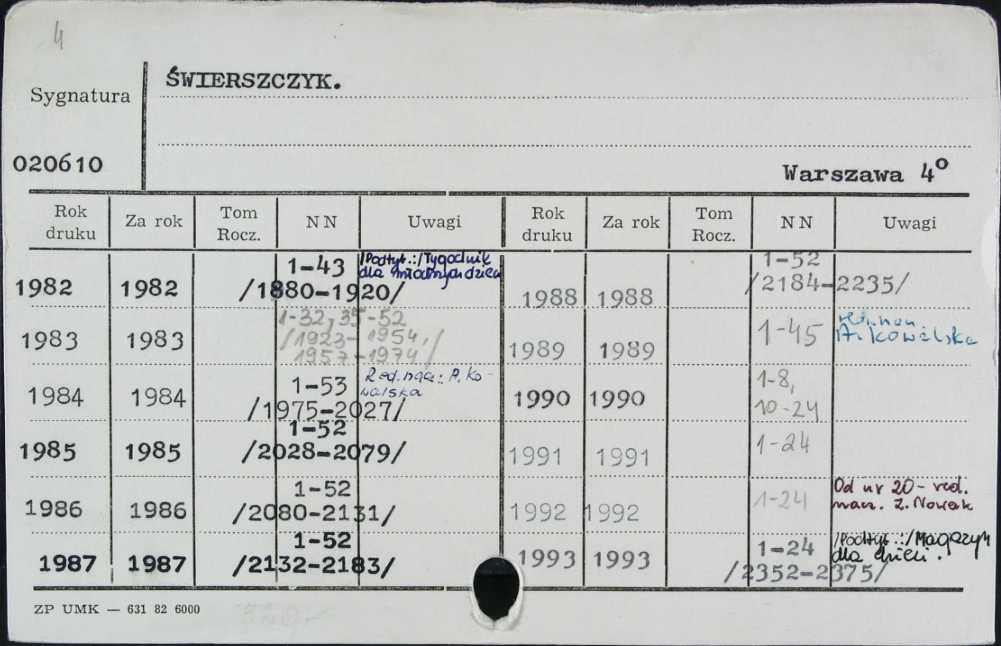 4
ŚWIERSZCZYK.
Sygnatura
020610
Warszawa 4⁰
Rok druku Za rok Tom Rocz. NN Uwagi Rok druku Za rok Tom Rocz. NN Uwagi
1982 1982 1-43 /1880-1920/ /Podtyt.:/Tygodnik dla młodszych dzieci
1983 1983 1-32, 35-52 /1923-1954, 1957-1974/
1984 1984 1-53 /1975-2027/ Red. nacz.: A. Kowalska
1985 1985 1-52 /2028-2079/
1986 1986 1-52 /2080-2131/
1987 1987 1-52 /2132-2183/
1988 1988 1-52 /2184-2235/
1989 1989 1-45 A. Kowalska
1990 1990 1-8, 10-24
1991 1991 1-24
1992 1992 1-24 Od nr 20- red. nacz. Z. Nowak
1993 1993 1-24 /2352-2375/ /Podtyt.:/Magazyn dla dzieci.
ZP UMK — 631 82 6000